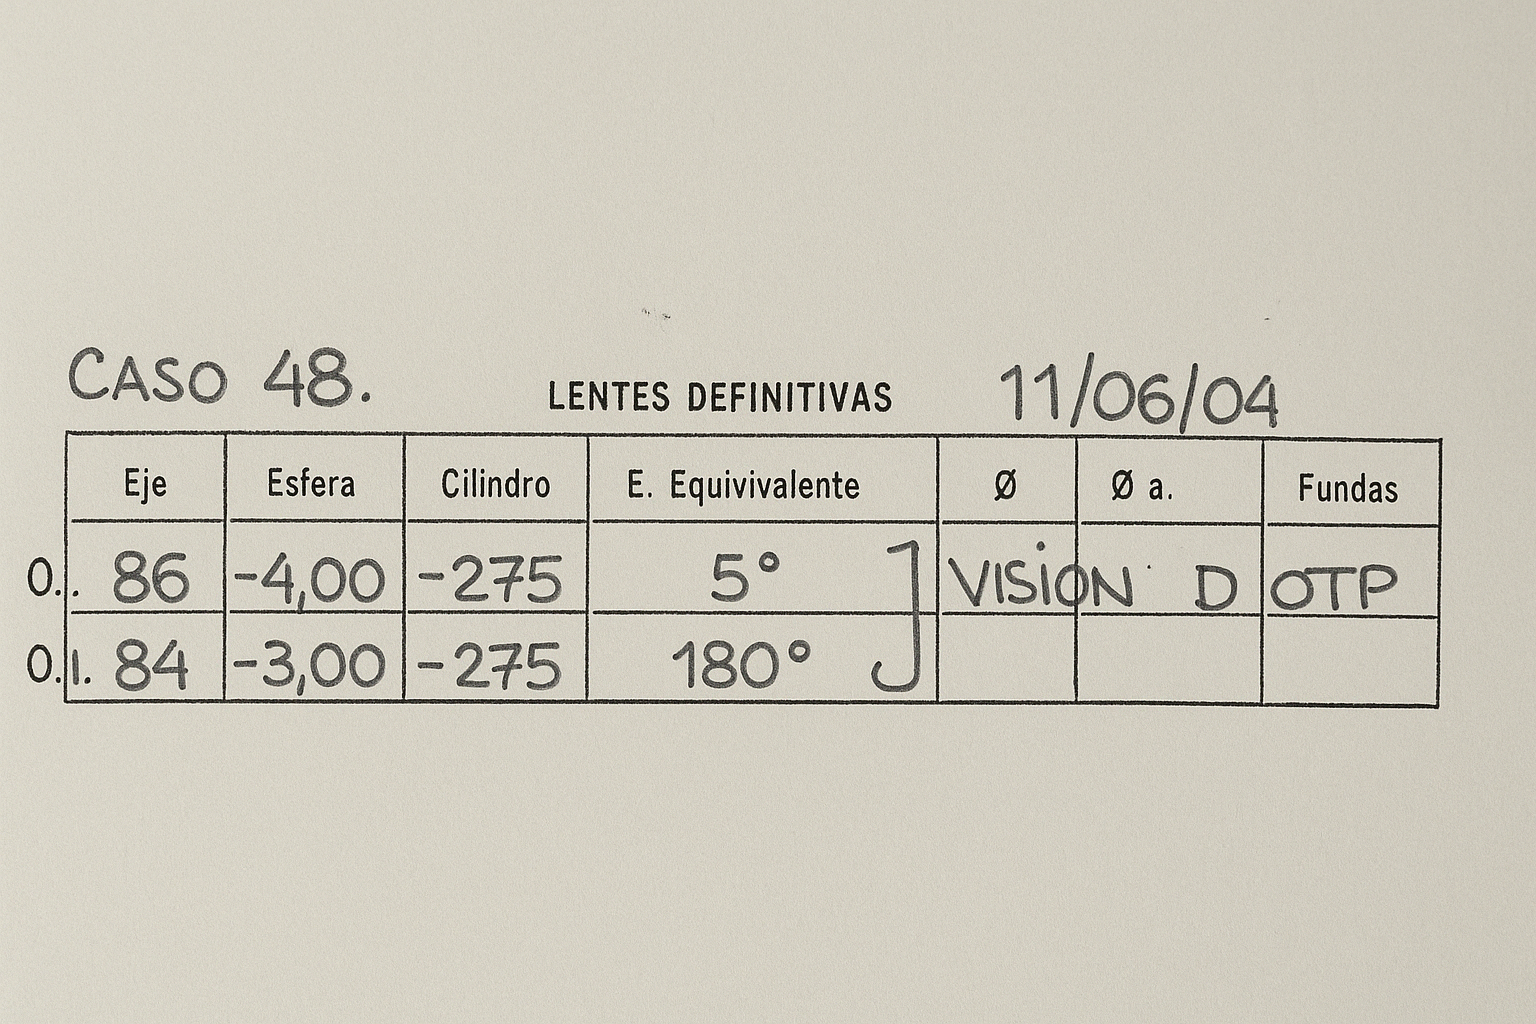 CASO 48. LENTES DEFINITIVAS 11/06/04
Eje Esfera Cilindro E. Equivivalente Ø Ø a. Fundas
O. . 86 -4,00 -275 5° VISION D OTP
O.I. 84 -3,00 -275 180°